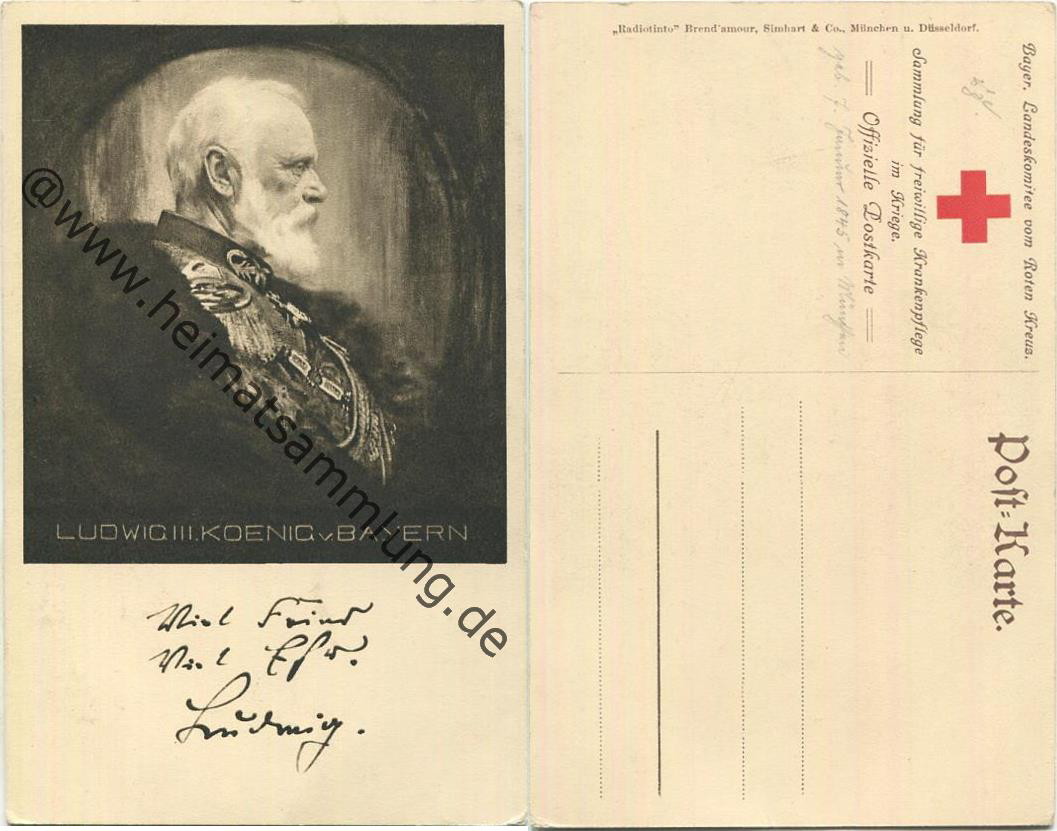 LUDWIG III. KOENIG v. BAYERN
Viel Feind
Viel Ehr.
Ludwig.
@www.heimatsammlung.de
„Radiotinto" Brend'amour, Simhart & Co., München u. Düsseldorf.
Bayer. Landeskomitee vom Roten Kreuz.
Sammlung für freiwillige Krankenpflege
im Kriege.
Offizielle Postkarte
geb. 7. Januar 1845 in München
Post-Karte.